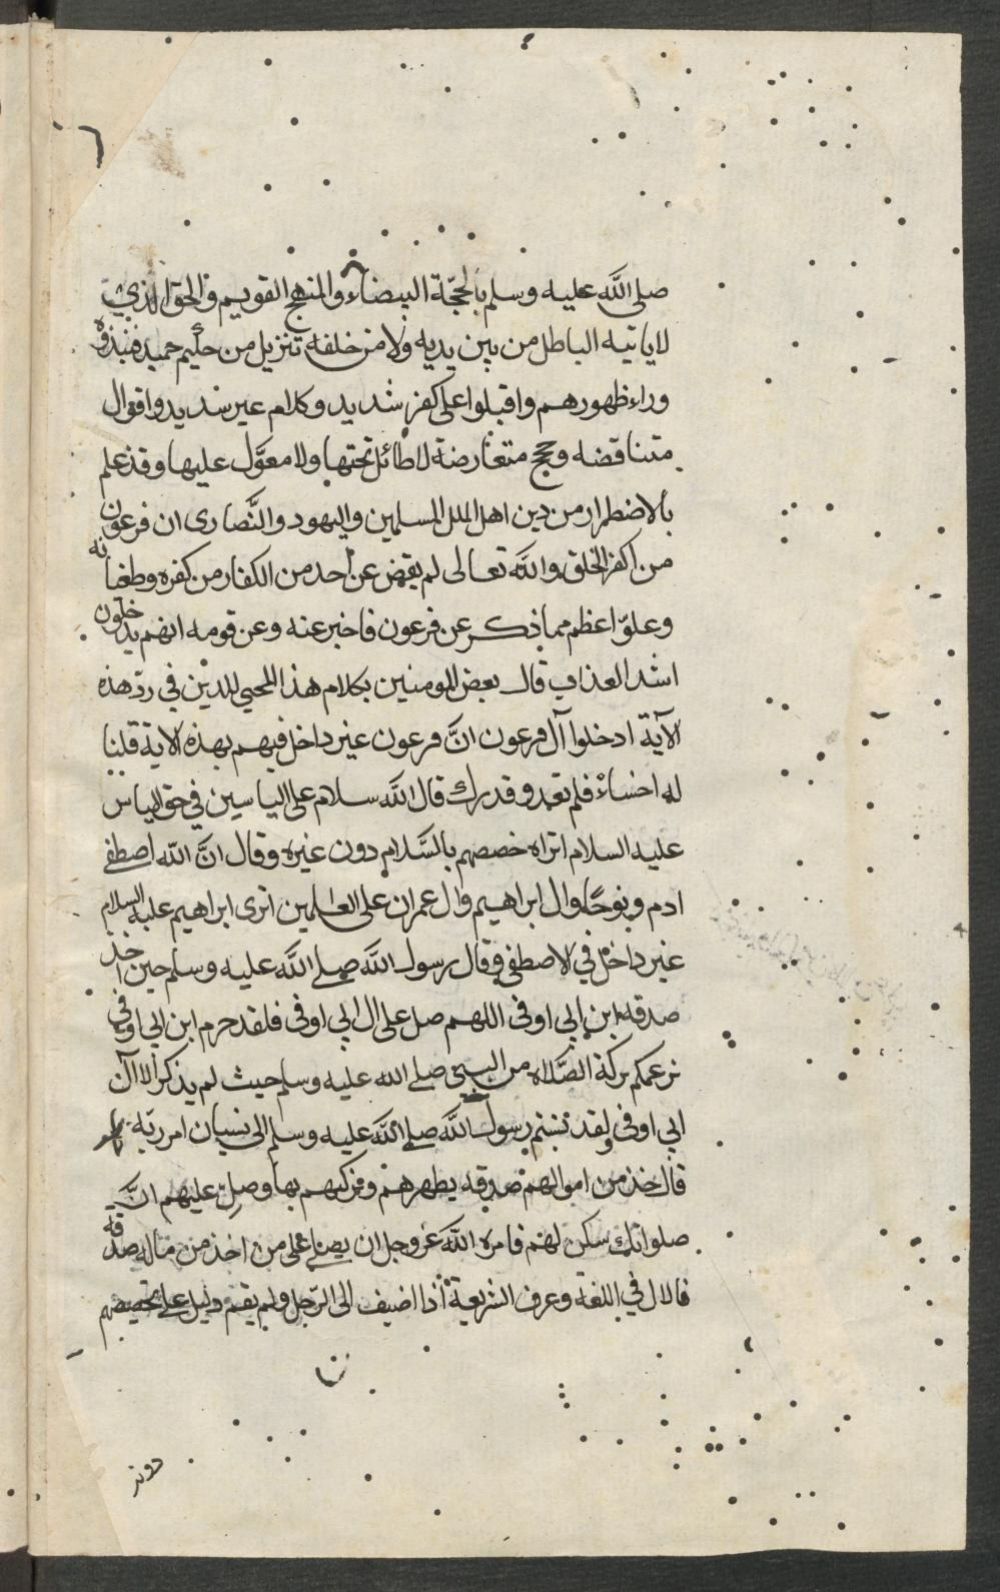 صلى الله عليه وسلم بالحجّة البيضاء والمنهج القويم والحق الذي
لا ياتيه الباطل من بين يديه ولا من خلفه تنزيل من حكيم حميد فنبذوه
وراء ظهورهم واقبلوا على كفر شديد وكلام غير سديد واقوال
متناقضه وحجج متعارضة لا طائل تحتها ولا معوّل عليها وقد علم
بالاضطرار من دين اهل الملل المسلمين واليهود والنّصارى ان فرعون
من اكفر الخلق والله تعالى لم يقص عن احد من الكفار من كفره وطغيانه
وعلوّ اعظم مما ذكر عن فرعون فاخبر عنه وعن قومه انهم يدخلون
اشد العذاب قال بعض المومنين بكلام هذا المحيي للدين في ردّ هذه
الآية ادخلوا آل فرعون انّ فرعون غير داخل فيهم بهذه الاية قلنا
له اخساء فلم تعد وقدرك قال الله سلام على الياسين في حق الياس
عليه السلام اتراه خصصهم بالسّلام دون غيره وقال انّ الله اصطفى
ادم ونوحًا وال ابراهيم وال عمران على العالمين اترى ابراهيم عليه السلام
غير داخل في الاصطفى وقال رسول الله صلى الله عليه وسلم حين اخذ
صدقه ابن ابي اوفى اللهم صل على ال ابي اوفى فلقد حرم ابن ابي اوفى
بزعمكم بركة الصّلاه من النبي صلى الله عليه وسلم حيث لم يذكر الا آل
ابي اوفى ولقد نسبتم رسول الله صلى الله عليه وسلم الى نسيان امر ربّه
قال خذ من اموالهم صدقه يطهرهم وتزكيهم بها وصل عليهم انّ
صلواتك سكن لهم فامره الله عز وجل ان يصلى على من اخذ من ماله صدقه
فالال في اللغة وعرف الشريعة اذا اضيف الى الرّجل ولم يقم دليل على تخصيصهم